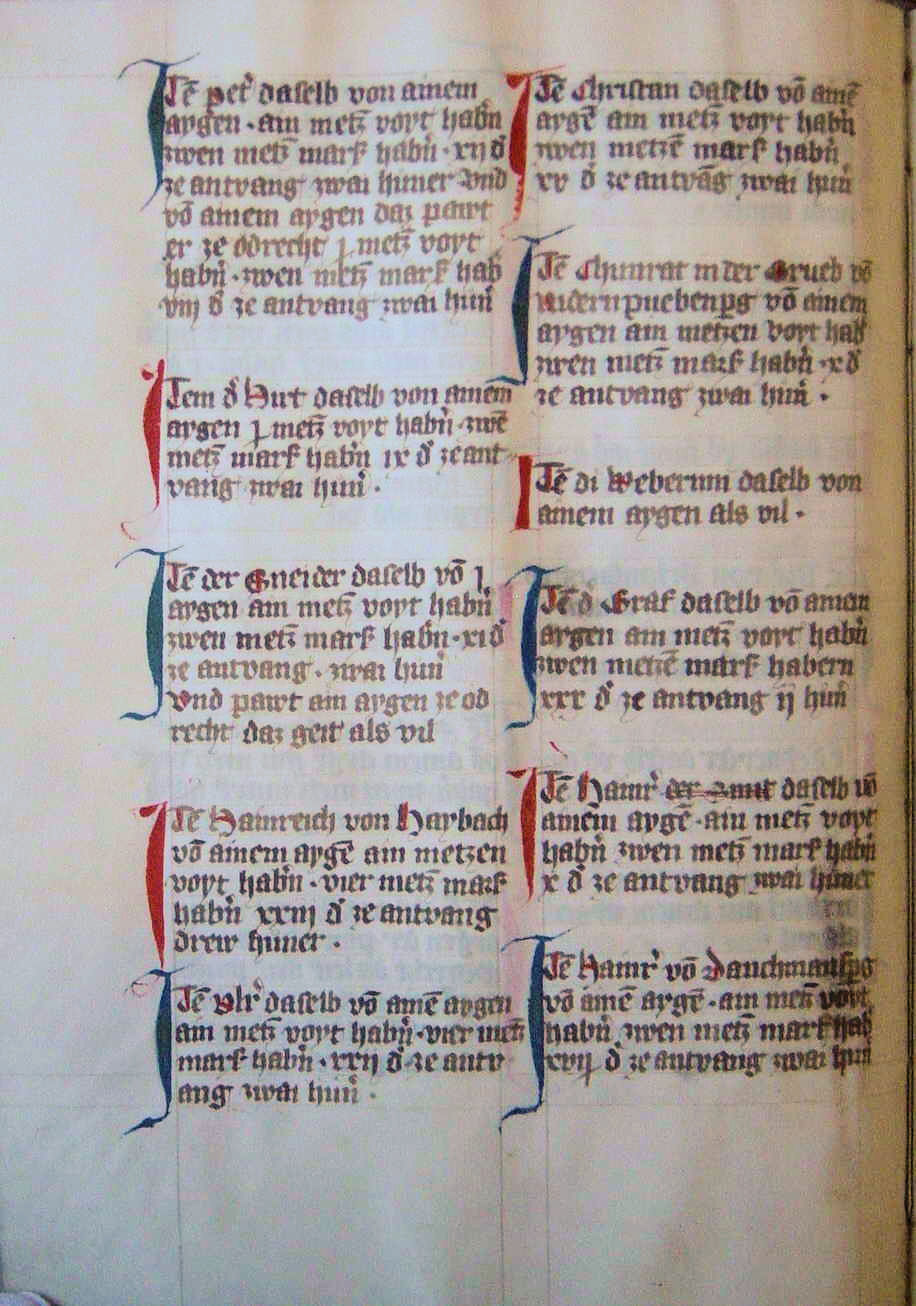 Itē pet͛ daselb von ainem
aygen · ain metz voyt habn̄
zwen metz mark habn̄ · xij d͛
ze antvang zwai huner vnd
vō ainem aygen daz pawt
er ze odrecht j metz voyt
habn̄ · zwen metz mark hab̄
viij d͛ ze antvang zwai hun͛
Item d͛ Hut daselb von ainem
aygen j metz voyt habn̄ · zwē
metz mark habn̄ ix d͛ ze ant
vang zwai hun͛ ·
Itē der Sneider daselb vō j
aygen ain metz voyt habn̄
zwen metz mark habn̄ · xi d͛
ze antvang · zwai hun͛
vnd pawt ain aygen ze od
recht daz geit als vil
Itē Hainreich von Haybach
vō ainem aygē ain metzen
voyt habn̄ · vier metz mark
habn̄ xxiij d͛ ze antvang
drew huner ·
Itē vlr͛ daselb vō amē aygen
ain metz voyt habn̄ · vier metz
mark habn̄ · xxij d͛ · ze antv
ang zwai hun͛ ·
Itē Christan daselb vō amē
aygē ain metz voyt habn̄
zwen metzē mark habn̄
xv d͛ ze antvāg zwai hun͛
Itē Chunrat in der Grueb vō
aygen ain metzen voyt hab̄
zwen metz mark habn̄ · x d͛
ze antvang zwai hun͛ ·
Itē di Weberinn daselb von
ainem aygen als vil ·
Itē d͛ Graf daselb vō ainem
aygen ain metz voyt habn̄
zwen metzē mark habern
xxx d͛ ze antvang ij hun͛
Itē Hainr͛ der daselb vō
amem aygē · ain metz voyt
habn̄ zwen metz mark habn̄
x d͛ ze antvang zwai huner
Itē Hainr͛ vō
vō amē aygē · ain metz voyt
habn̄ zwen metz mark hab̄
xvij d͛ ze antvang zwai hun͛